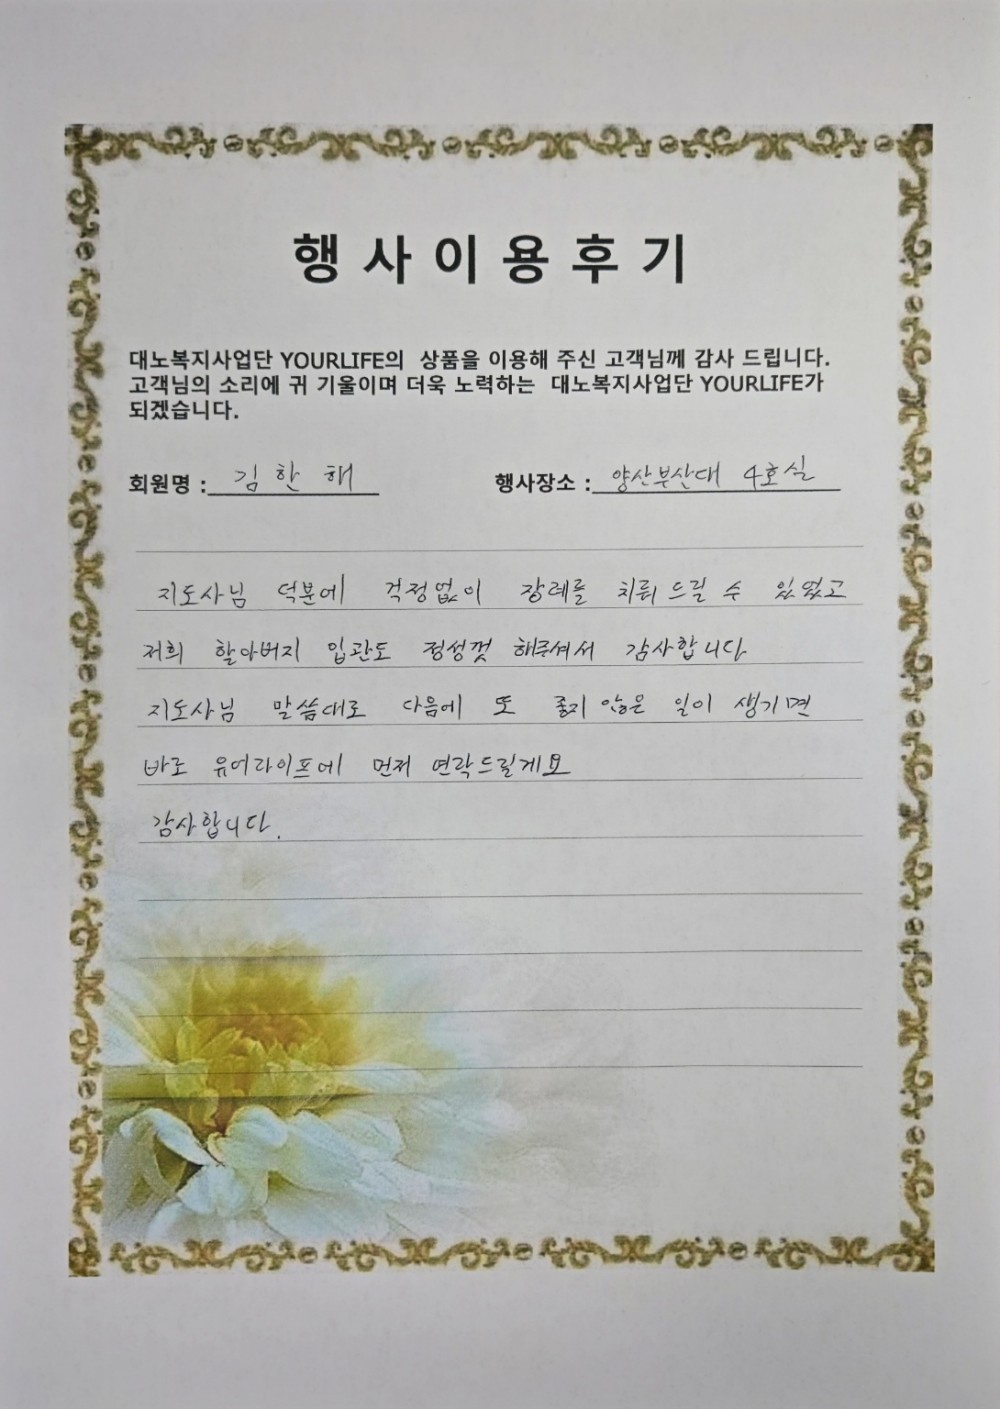 행사이용후기
대노복지사업단 YOURLIFE의 상품을 이용해 주신 고객님께 감사 드립니다.
고객님의 소리에 귀 기울이며 더욱 노력하는 대노복지사업단 YOURLIFE가
되겠습니다.
회원명 : 김한해 행사장소 : 양산부산대 4호실
지도사님 덕분에 걱정없이 장례를 치뤄드릴 수 있었고
저희 할아버지 입관도 정성껏 해주셔서 감사합니다
지도사님 말씀대로 다음에 또 좋지 않은 일이 생기면
바로 유어라이프에 먼저 연락드릴게요
감사합니다.